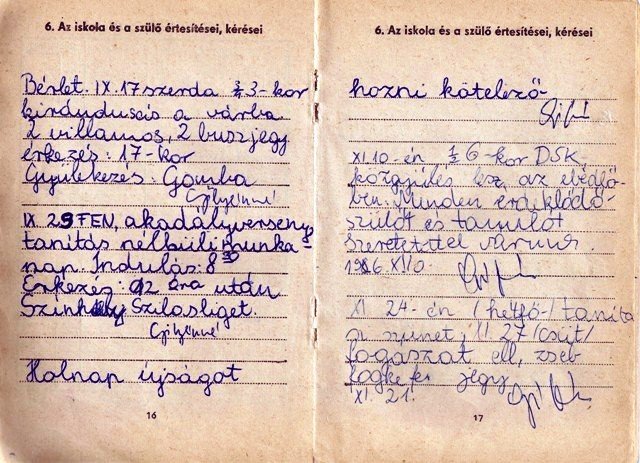 6. Az iskola és a szülő értesítései, kérései
Bérlet. IX. 17 szerda ½ 3-kor
kirándusás a várba
2 villamos, 2 buszjegy
érkezés: 17-kor
Gyülekezés: Gomba
IX. 29 FEN, akadályverseny
tanítás nélküli munka-
nap. Indulás: 8
Érkezés: 12 óra után
Színhely Szilasliget.
Holnap újságot
16
6. Az iskola és a szülő értesítései, kérései
hozni kötelező
XI. 10-én, ½ 6-kor DSK,
közgyűlés lesz az ebédlő-
ben. Minden érdeklődő
szülőt és tanulót
szeretettel várunk.
1986 XI 10.
XI 24-én /hétfő/ tanítá
si szünet, 27 /csüt/
fogászat ell, zseb
jegy
XI. 21.
17